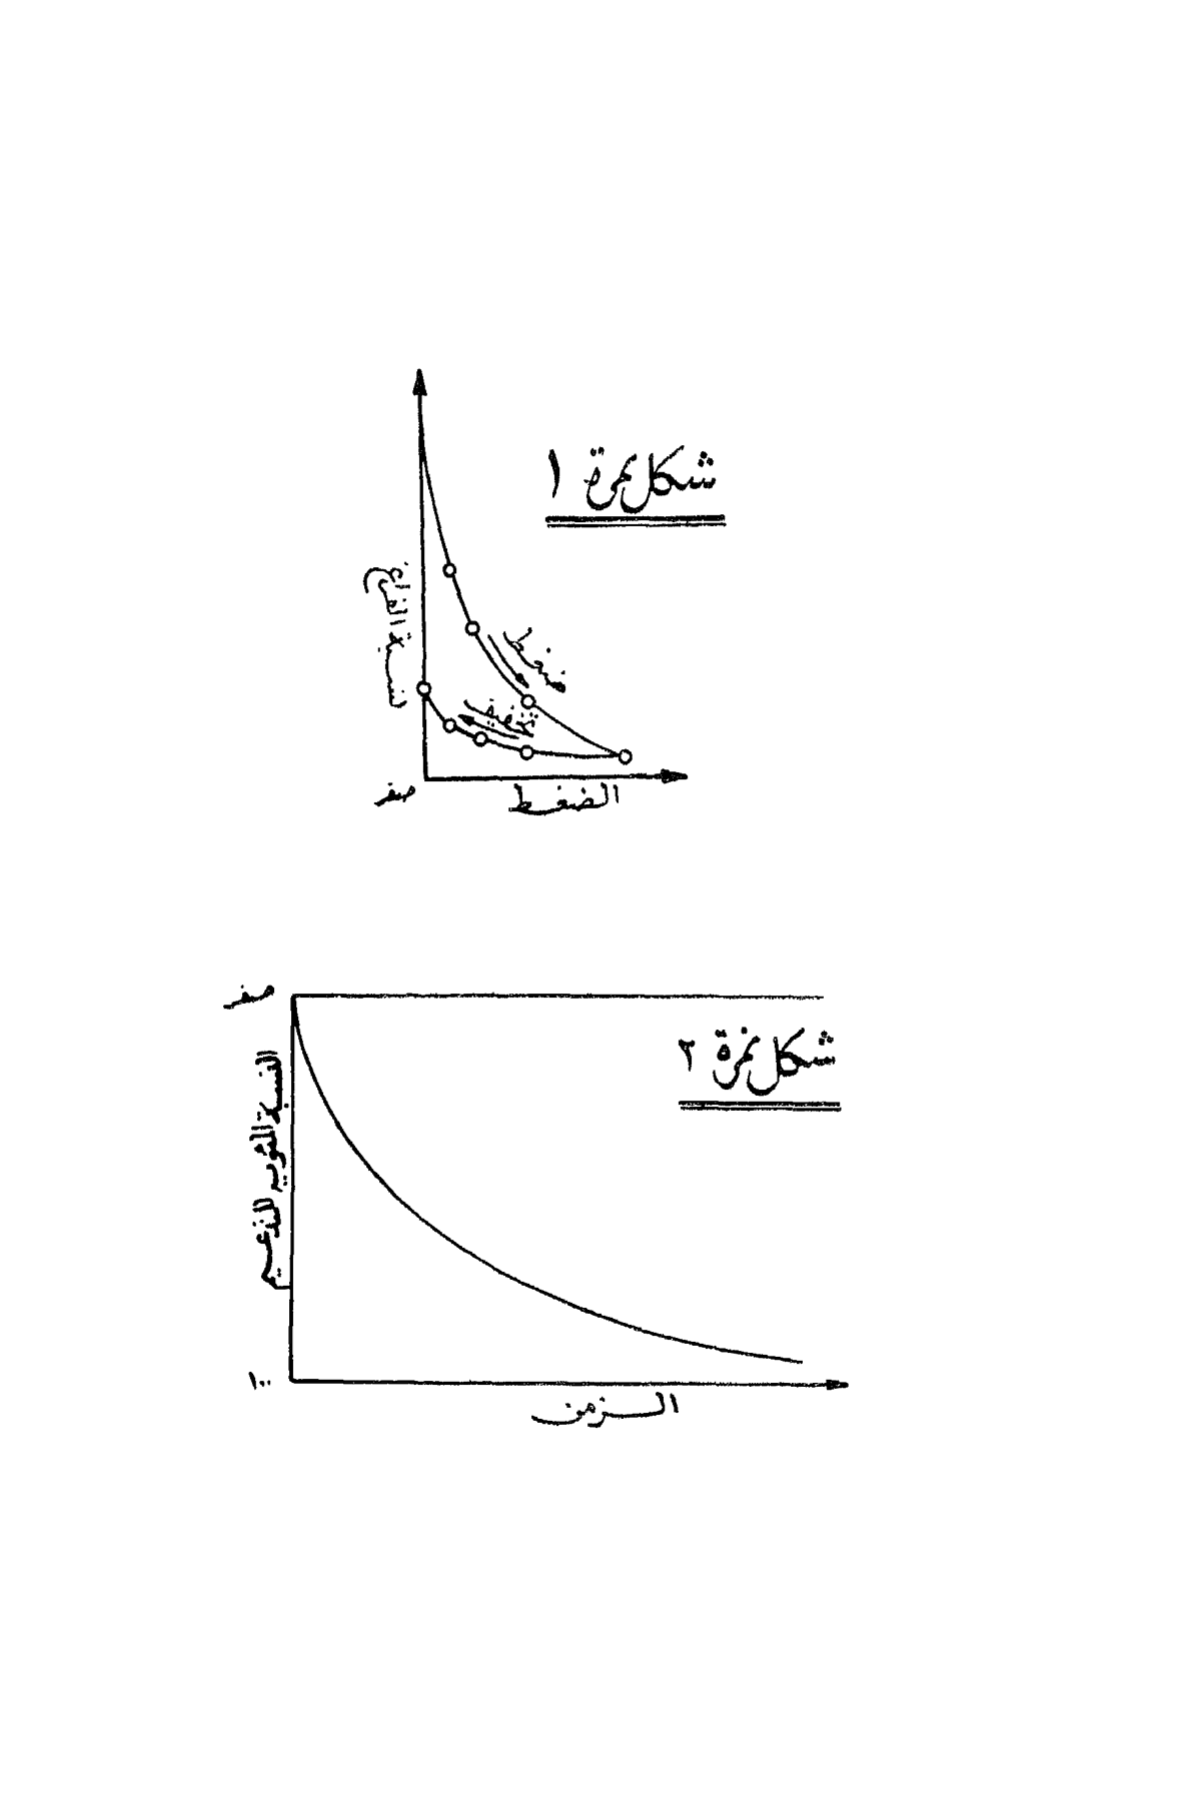 شكل نمرة ١
نسبة الفراغ
ضغط
تخفيف
صفر
الضغط
صفر
شكل نمرة ٢
النسبة المئوية للتدعيم
١٠٠
الزمن